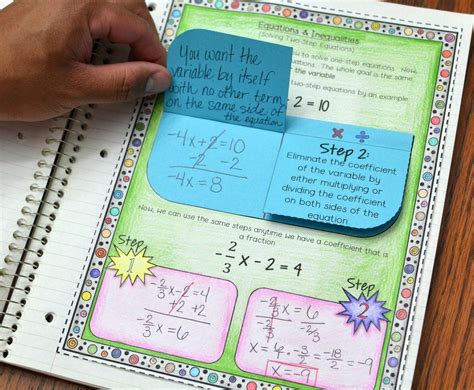 Equations & Inequalities
(Solving Two-Step Equations)
to solve one-step equations. Now,
equations. The whole goal is the same:
the variable
two-step equations by an example.
= 10
You want the
variable by itself
with no other term
on the same side of
the equation
-4x+2=10
-2 -2
-4x=8
Step 2:
Eliminate the coefficient
of the variable by
either multiplying or
dividing the coefficient
on both sides of the
equation
Now, we can use the same steps anytime we have a coefficient that is
a fraction
-2/3 x - 2 = 4
Step
1
-2/3 x-2=4
+2 +2
-2/3 x=6
Step
2
-2/3 x = 6
-2/3 -2/3
x = 6 · -3/2 = -18/2 = -9
x = -9